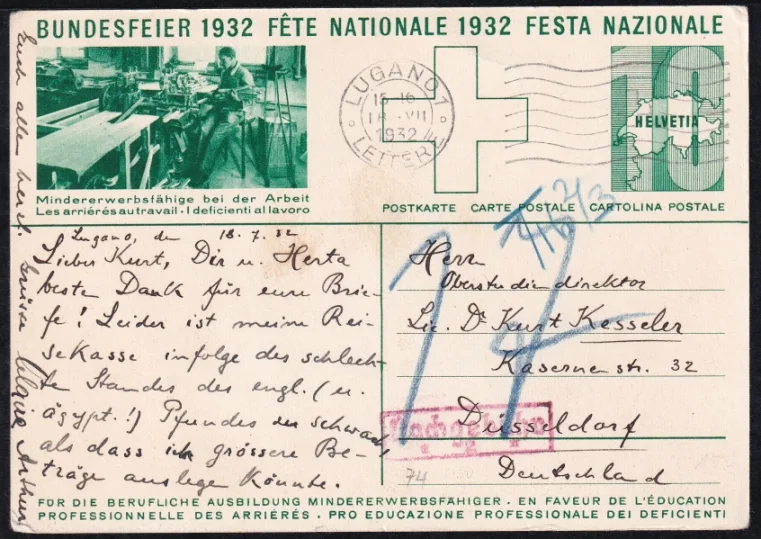 BUNDESFEIER 1932 FÊTE NATIONALE 1932 FESTA NAZIONALE
LUGANO 1
15-16
18.VII
1932
LETTERE
10
HELVETIA
Mindererwerbsfähige bei der Arbeit
Les arriérés au travail · I deficienti al lavoro
POSTKARTE CARTE POSTALE CARTOLINA POSTALE
Lugano, den 18.7.32
Lieber Kurt, Dir u. Herta
beste Dank für eure Brie-
fe! Leider ist meine Rei-
sekasse infolge des schlech-
ten Standes des engl. (u.
ägypt.!) Pfundes zu schwach,
als dass ich grössere Be-
träge auslegen könnte.
Euch allen herzl. Grüsse
Arthur
Herrn
Oberstudiendirektor
Lic. Dr Kurt Kesseler
Kasernenstr. 32
Düsseldorf
Deutschland
Nachgebühr
74
FÜR DIE BERUFLICHE AUSBILDUNG MINDERERWERBSFÄHIGER · EN FAVEUR DE L'ÉDUCATION
PROFESSIONNELLE DES ARRIÉRÉS · PRO EDUCAZIONE PROFESSIONALE DEI DEFICIENTI